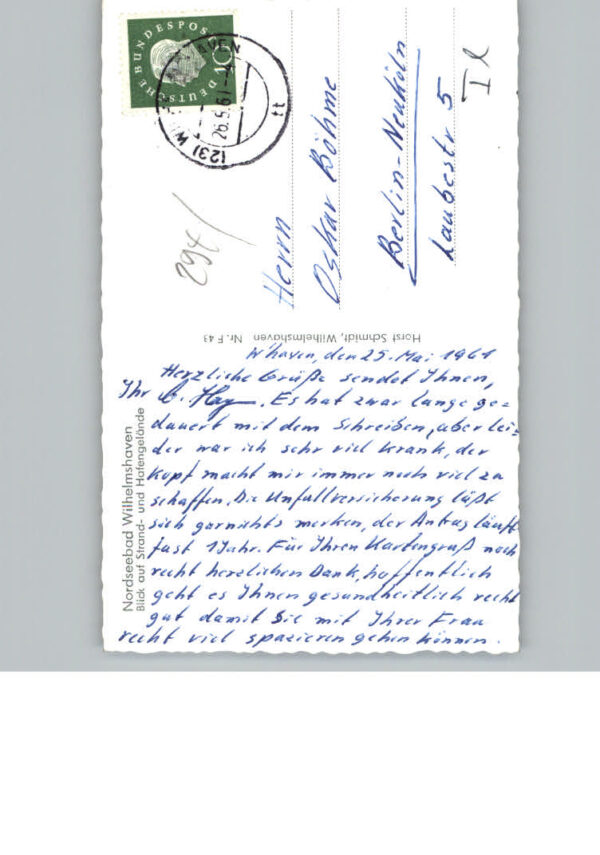 DEUTSCHE BUNDESPOST
10
(23) WILHELMSHAVEN
26.5.61
tt
Herrn
Oskar Böhme
Berlin-Neuköln
Laubestr 5
I l
Horst Schmidt, Wilhelmshaven Nr. F 43
Nordseebad Wilhelmshaven
Blick auf Strand- und Hafengelände
W'haven, den 25. Mai 1961
Herzliche Grüße sendet Ihnen,
Ihr . Es hat zwar lange ge-
dauert mit dem Schreiben, aber lei-
der war ich sehr viel krank, der
Kopf macht mir immer noch viel zu
schaffen. Die Unfallversicherung läßt
sich garnichts merken, der Antrag läuft
fast 1 Jahr. Für Ihren Kartengruß noch
recht herzlichen Dank, hoffentlich
geht es Ihnen gesundheitlich recht
gut damit Sie mit Ihrer Frau
recht viel spazieren gehen können.